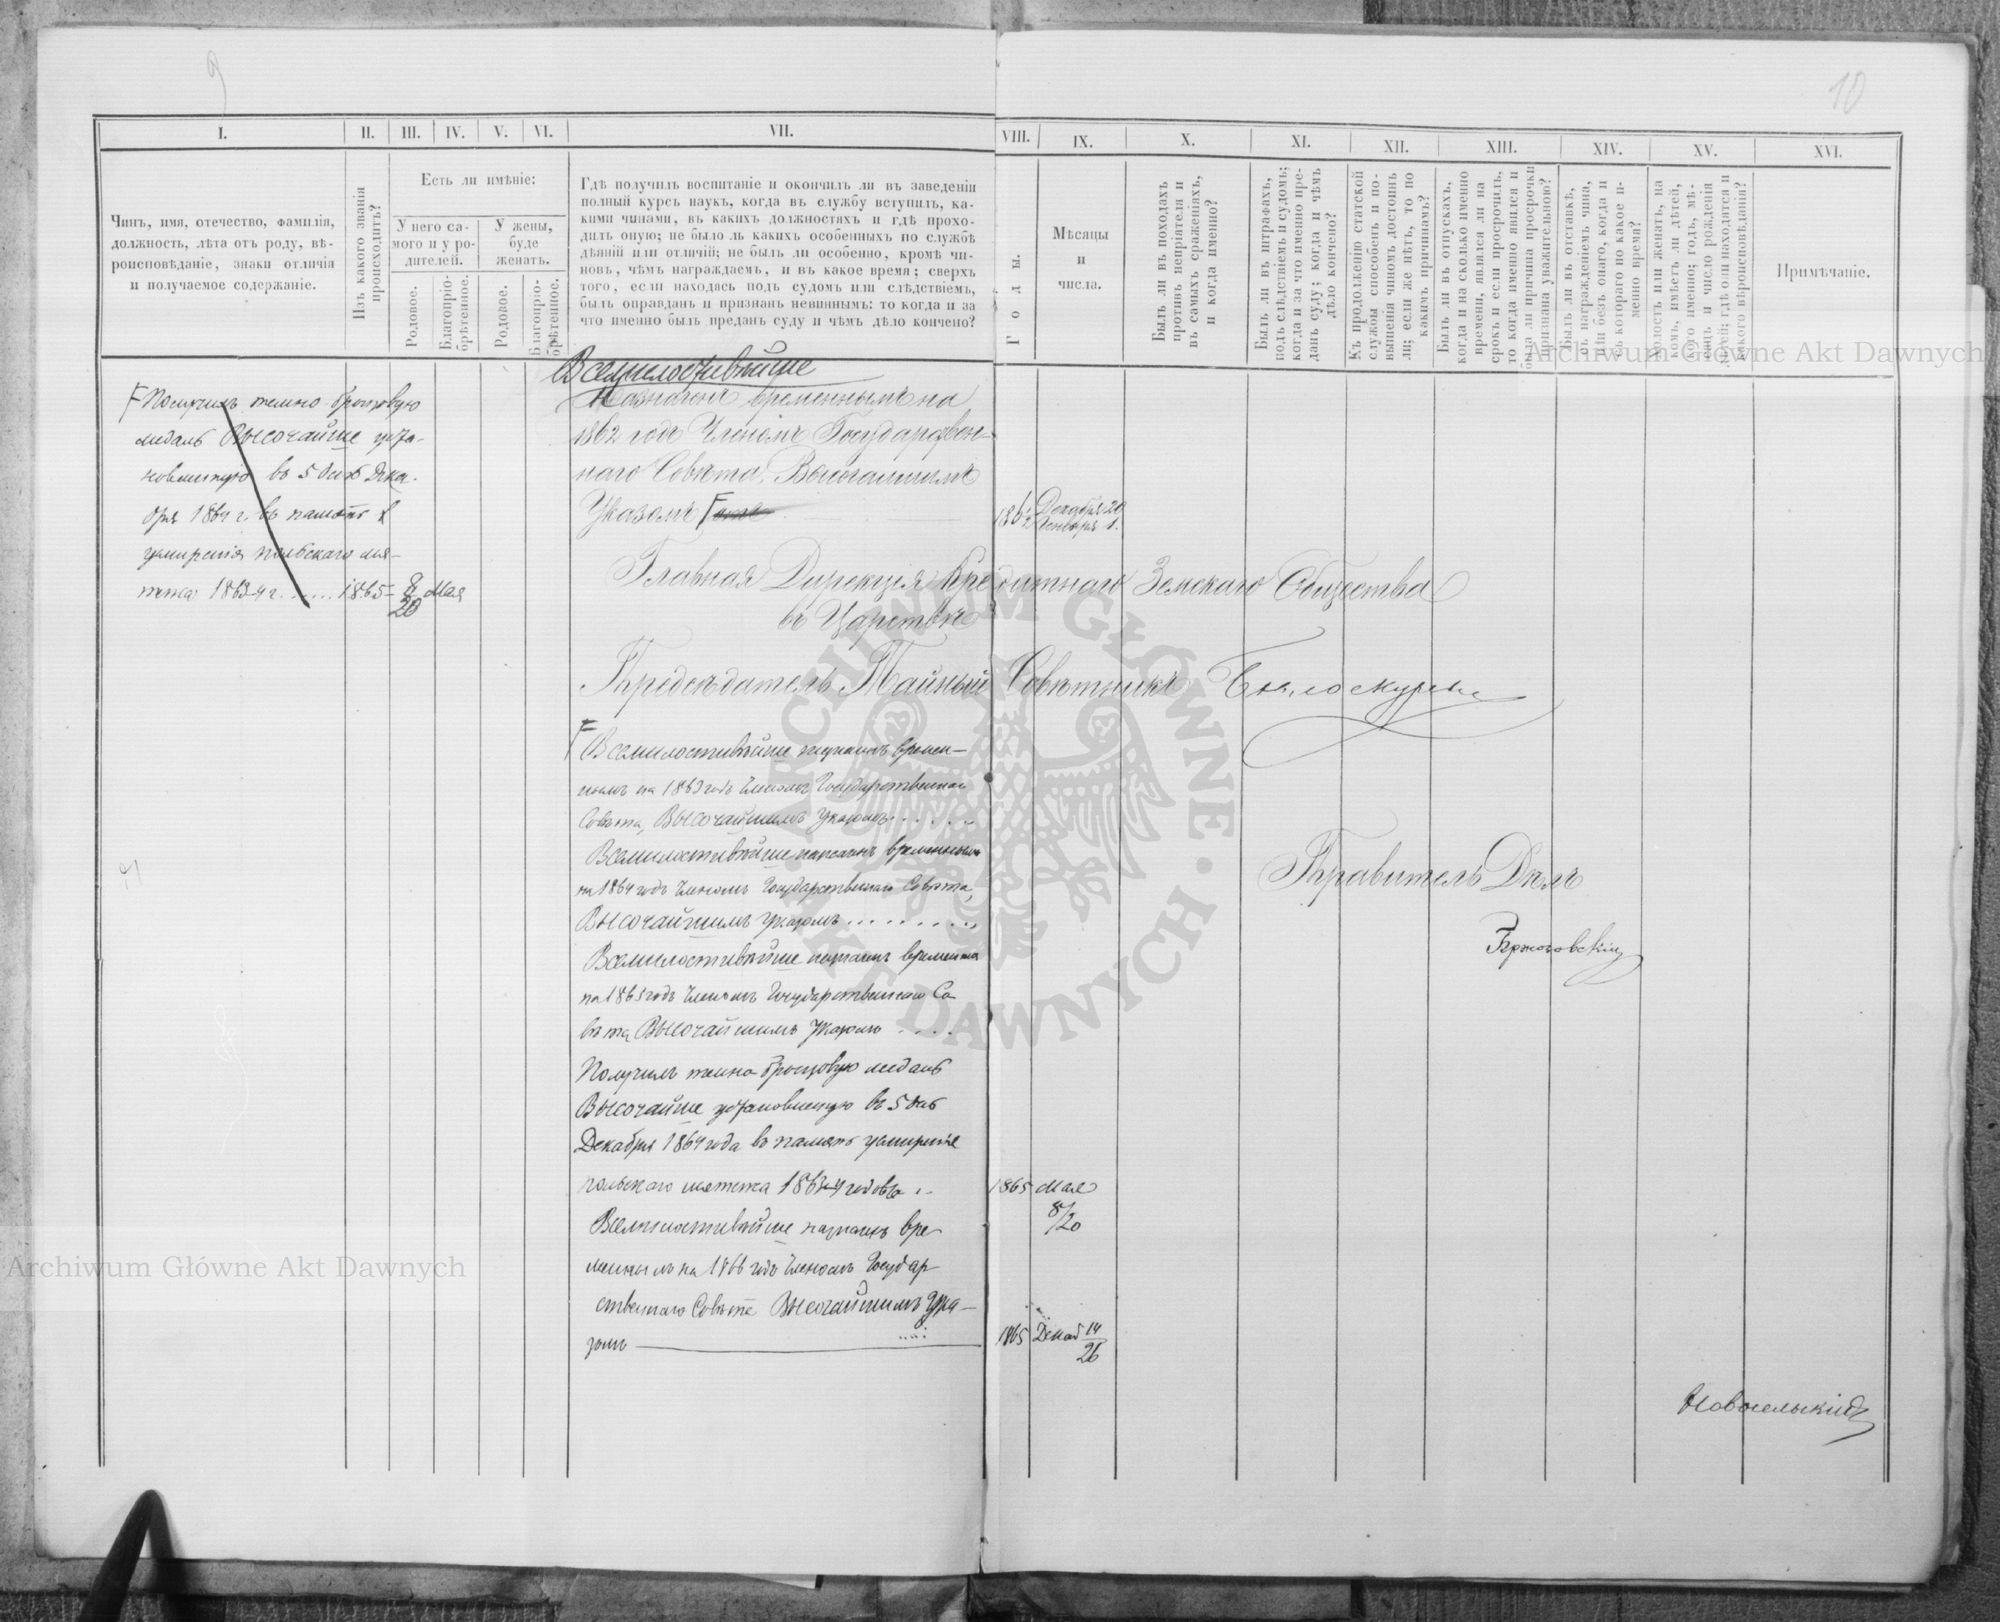 9
10
I.
II.
III.
IV.
V.
VI.
VII.
VIII.
IX.
X.
XI.
XII.
XIII.
XIV.
XV.
XVI.
Чинъ, имя, отечество, фамилія,
должность, лѣта отъ роду, вѣ-
роисповѣданіе, знаки отличія
и получаемое содержаніе.
Изъ какого званія
происходитъ?
Есть ли имѣніе:
У него са-
мого и у ро-
дителей.
У жены,
буде
женатъ.
Родовое.
Благопріо-
брѣтенное.
Родовое.
Благопріо-
брѣтенное.
Гдѣ получилъ воспитаніе и окончилъ ли въ заведеніи
полный курсъ наукъ, когда въ службу вступилъ, ка-
кими чинами, въ какихъ должностяхъ и гдѣ прохо-
дилъ оную; не было ль какихъ особенныхъ по службѣ
дѣяній или отличій; не былъ ли особенно, кромѣ чи-
новъ, чѣмъ награждаемъ, и въ какое время; сверхъ
того, если находясь подъ судомъ или слѣдствіемъ,
былъ оправданъ и признанъ невиннымъ: то когда и за
что именно былъ преданъ суду и чѣмъ дѣло кончено?
Годы.
Мѣсяцы
и
числа.
Былъ ли въ походахъ
противъ непріятеля и
въ самыхъ сраженіяхъ,
и когда именно?
Былъ ли въ штрафахъ,
подъ слѣдствіемъ и судомъ;
когда и за что именно пре-
данъ суду; когда и чѣмъ
дѣло кончено?
Къ продолженію статской
службы способенъ и по-
вышенія чиномъ достоинъ
ли; если же нѣтъ, то по
какимъ причинамъ?
Былъ ли въ отпускахъ,
когда и на сколько именно
времени, являлся ли на
срокъ и если просрочилъ,
то когда именно явился и
была ли причина просрочки
признана уважительною?
Былъ ли въ отставкѣ,
съ награжденіемъ чина,
или безъ онаго, когда и
съ котораго по какое и-
менно время?
Холостъ или женатъ, на
комъ, имѣетъ ли дѣтей,
кого именно; годъ, мѣ-
сяцъ и число рожденія
дѣтей; гдѣ они находятся и
какого вѣроисповѣданія?
Примѣчаніе.
Получилъ темно бронзовую
медаль Высочайше уста-
новленную въ 5 день Дека-
бря 1864 г. въ память
усмиренія польскаго мя-
тежа 1863-4 г. ...... 1865 - 8/20 Мая
Всемилостивѣйше
Назначенъ временнымъ на
1862 годъ Членомъ Государствен-
наго Совѣта, Высочайшимъ
Указомъ
Декабря 20
Января 1.
Главная Дирекція Кредитнаго Земскаго Общества
въ Царствѣ
Предсѣдатель Тайный Совѣтникъ Бѣлоскурскій
Всемилостивѣйше назначенъ времен-
нымъ на 1863 годъ Членомъ Государственнаго
Совѣта, Высочайшимъ Указомъ......
Всемилостивѣйше назначенъ временнымъ
на 1864 годъ Членомъ Государственнаго Совѣта,
Высочайшимъ Указомъ.........
Всемилостивѣйше назначенъ времен. на
на 1865 годъ Членомъ Государственнаго Со-
вѣта, Высочайшимъ Указомъ ....
Получилъ темно бронзовую медаль
Высочайше установленную въ 5 день
Декабря 1864 года въ память усмиренія
польскаго мятежа 1863-4 годовъ..
1865 Мая
8/20
Всемилостивѣйше назначенъ вре-
меннымъ на 1866 годъ Членомъ Государ-
ственнаго Совѣта Высочайшимъ Ука-
зомъ
1865 Декаб 14/26
Правитель Дѣлъ
Новосельскій
Archiwum Główne Akt Dawnych
Archiwum Główne Akt Dawnych
ARCHIWUM GŁÓWNE · AKT DAWNYCH ·